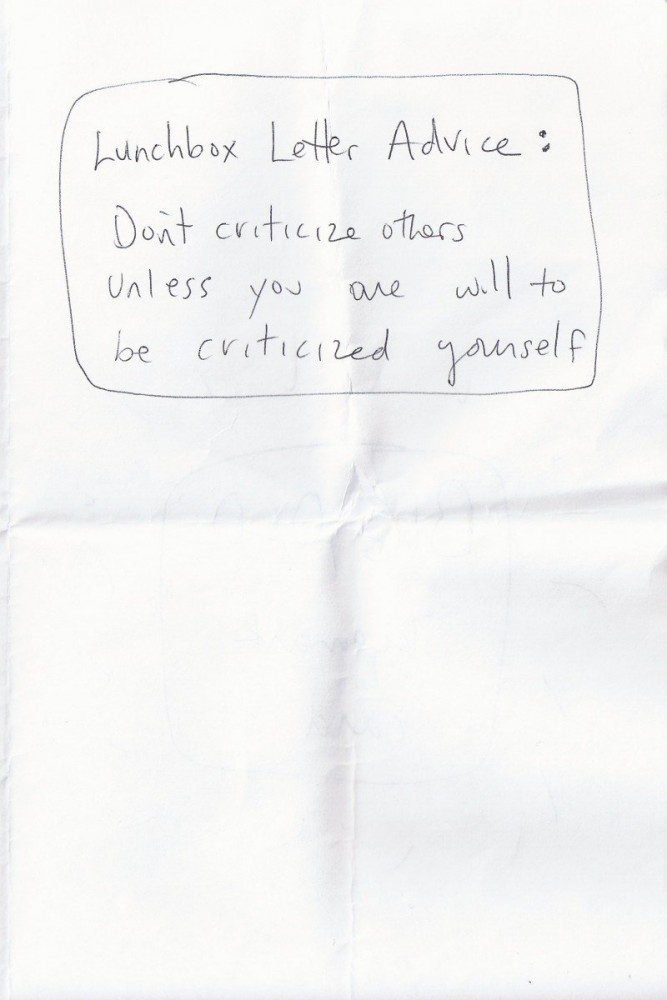 Lunchbox Letter Advice:
Don't criticize others
unless you are will to
be criticized yourself